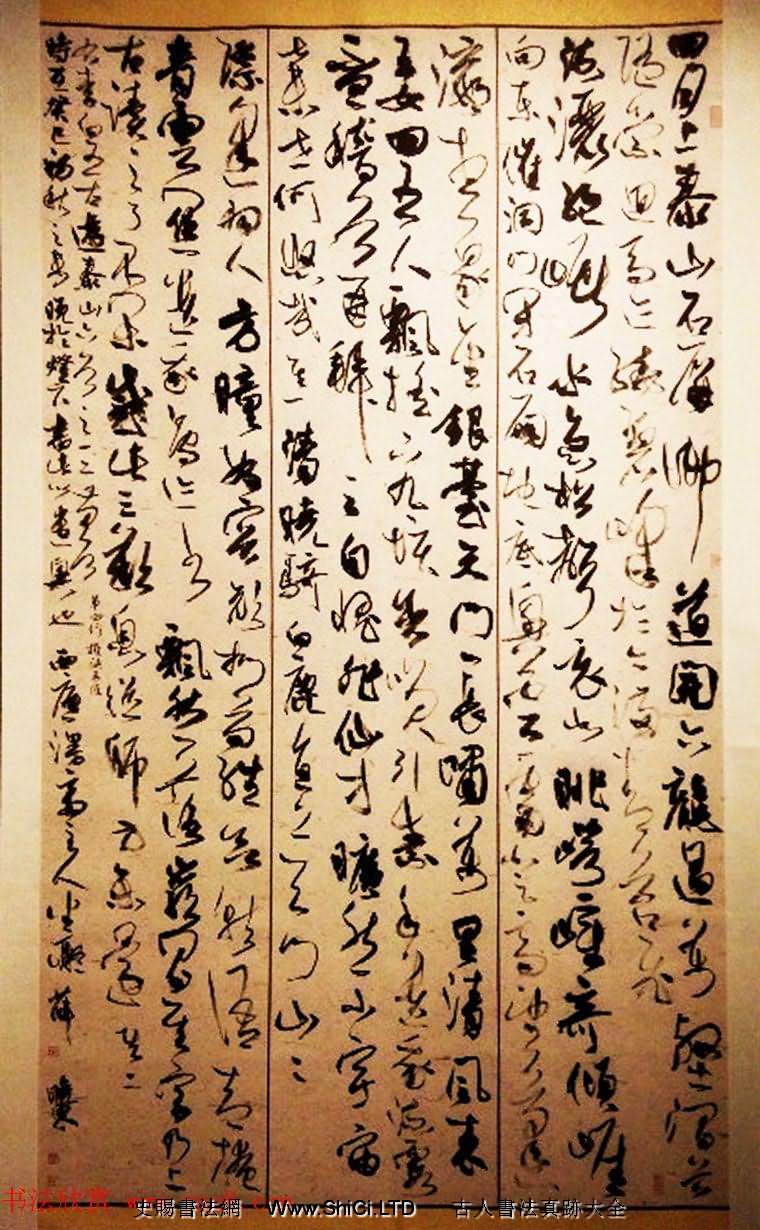 四月上泰山石屏御道開六龍過萬壑澗谷
隨縈迴馬跡繞碧峰於今滿青苔飛
流灑絕巘水急松聲哀北眺崿嶂奇傾崖
向東摧洞門閉石扇地底興雲雷登高望蓬
瀛想象金銀臺天門一長嘯萬里清風來
玉女四五人飄颻下九垓含笑引素手遺我流霞
盃稽首再拜之自愧非仙才曠然小宇宙
棄世何悠哉其一清曉騎白鹿直上天門山山
際逢羽人方瞳好容顏捫蘿欲就語却掩
青雲關遺我鳥跡書飄然落巖間其字乃上
古讀之了不閑感此三歎息從師方未還其二
右書白五古遊泰山六首之一二
時在癸巳初秋之書晚於燈下書此以遣興也
書法欣賞 www.
史賜書法網 Www.ShiCi.LTD 古人書法真跡大全